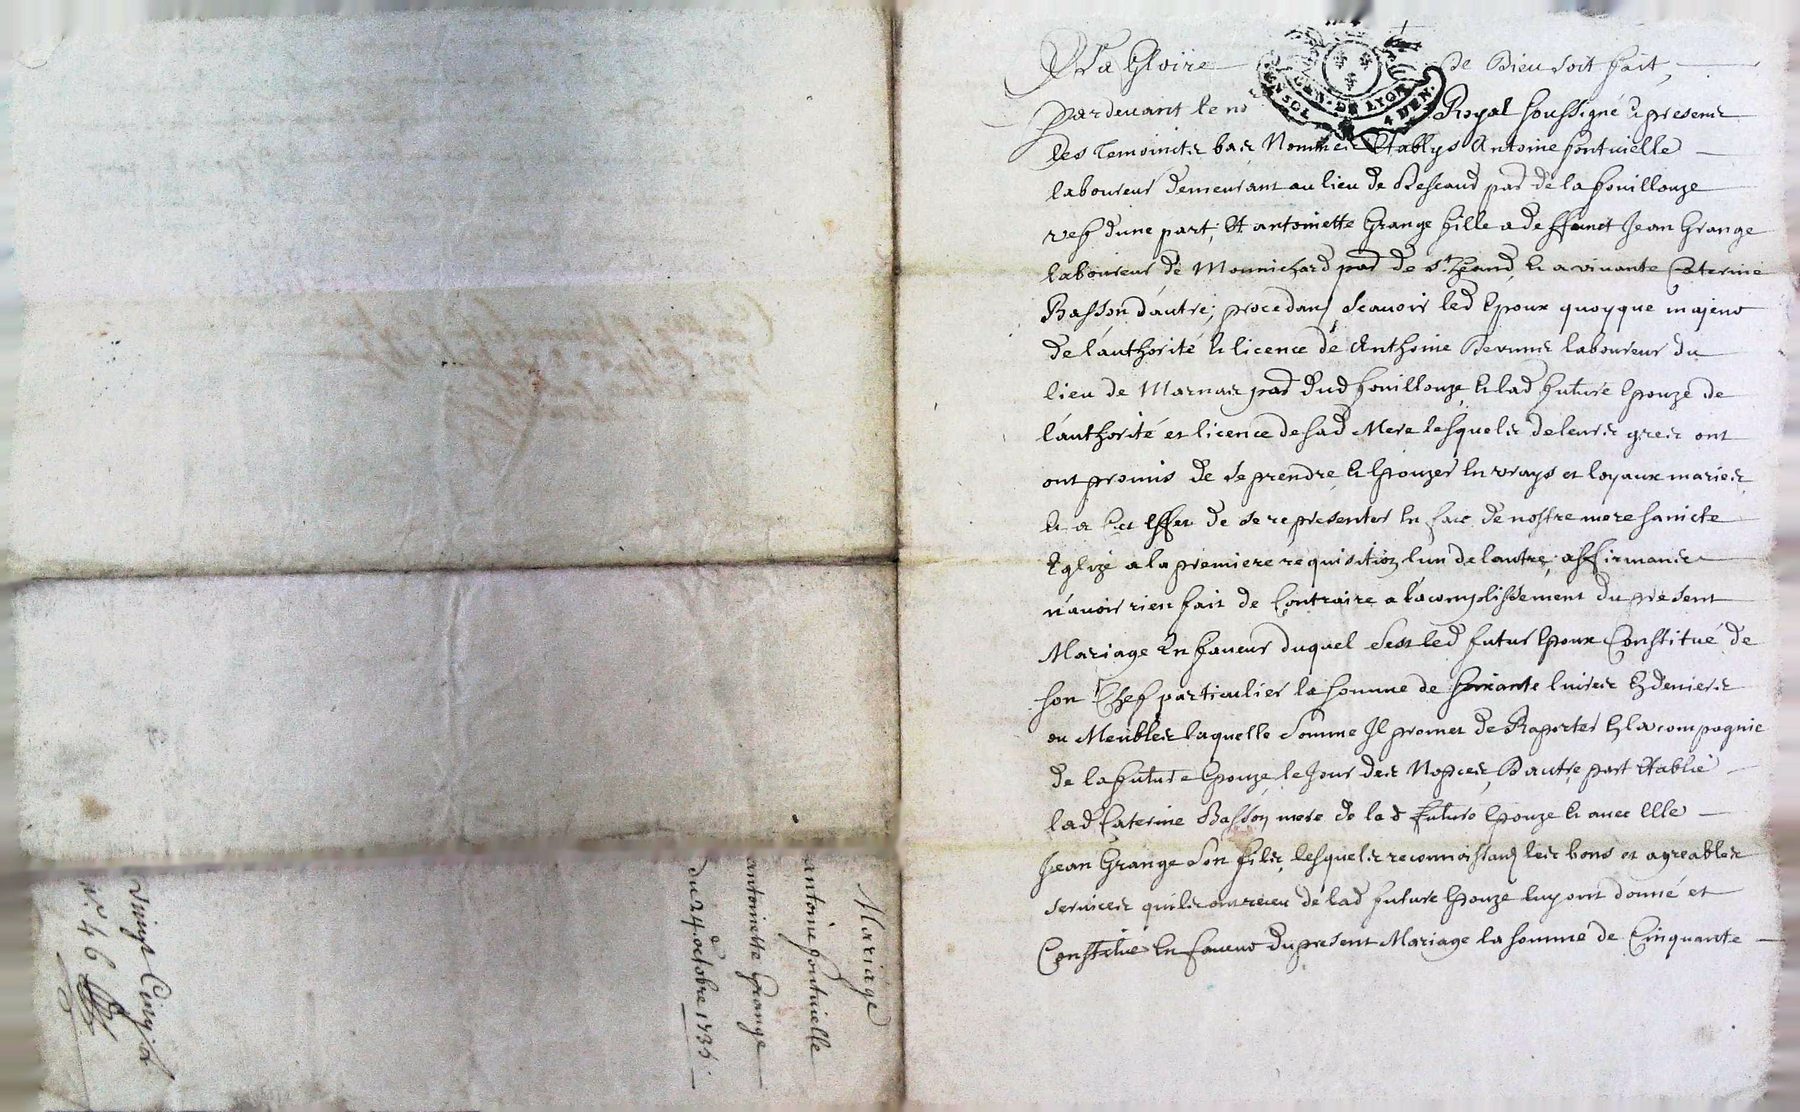 A La Gloire de Dieu soit fait,
GEN. DE LYON
4 DEN.
pardevant le no Royal soussigné & presents
les temoints bas Nommés Etablys Antoine fontvielle
laboureur demeurant au lieu de par de la fouillouze
vef d'une part, Et antoinette Grange fille a deffunct Jean Grange
laboureur de Monnichard par de st a vivante Caterine
Basson d'autre; procedans scavoir led Epoux quoyque majeur
de l'authorité & licence de Anthoine laboureur du
lieu de Marnas par dud fouillouze, & lad future Epouze de
l'authorité et licence de sad Mere lesquels de leurs grés ont
ont promis de se prendre & Epouzer en vrays et loyaux mariés
& a cet Effet de se representer en face de nostre mere saincte
Eglize a la premiere requisition lun de lautre, affirmants
n'avoir rien fait de Contraire a l'acomplissement du present
Mariage En faveur duquel sest led futur Epoux Constitué de
son Chef particulier la somme de soixante livres En deniers
ou Meubles laquelle somme Il promet de Raporter En la compagnie
de la future Epouze le Jour des Nopces, D'autre part Etablie
lad Caterine Basson mere de lad future Epouze & avec Elle
Jean Grange son fils, lesquels reconnoissants les bons et agreables
services quils ont receu de lad future Epouze luy ont donné et
Constitué En faveur du present Mariage la somme de Cinquante
Mariage
antoine fontvielle
antoinette Grange
du 24 d'octobre 1735
vingt Cinq sol
nº 46